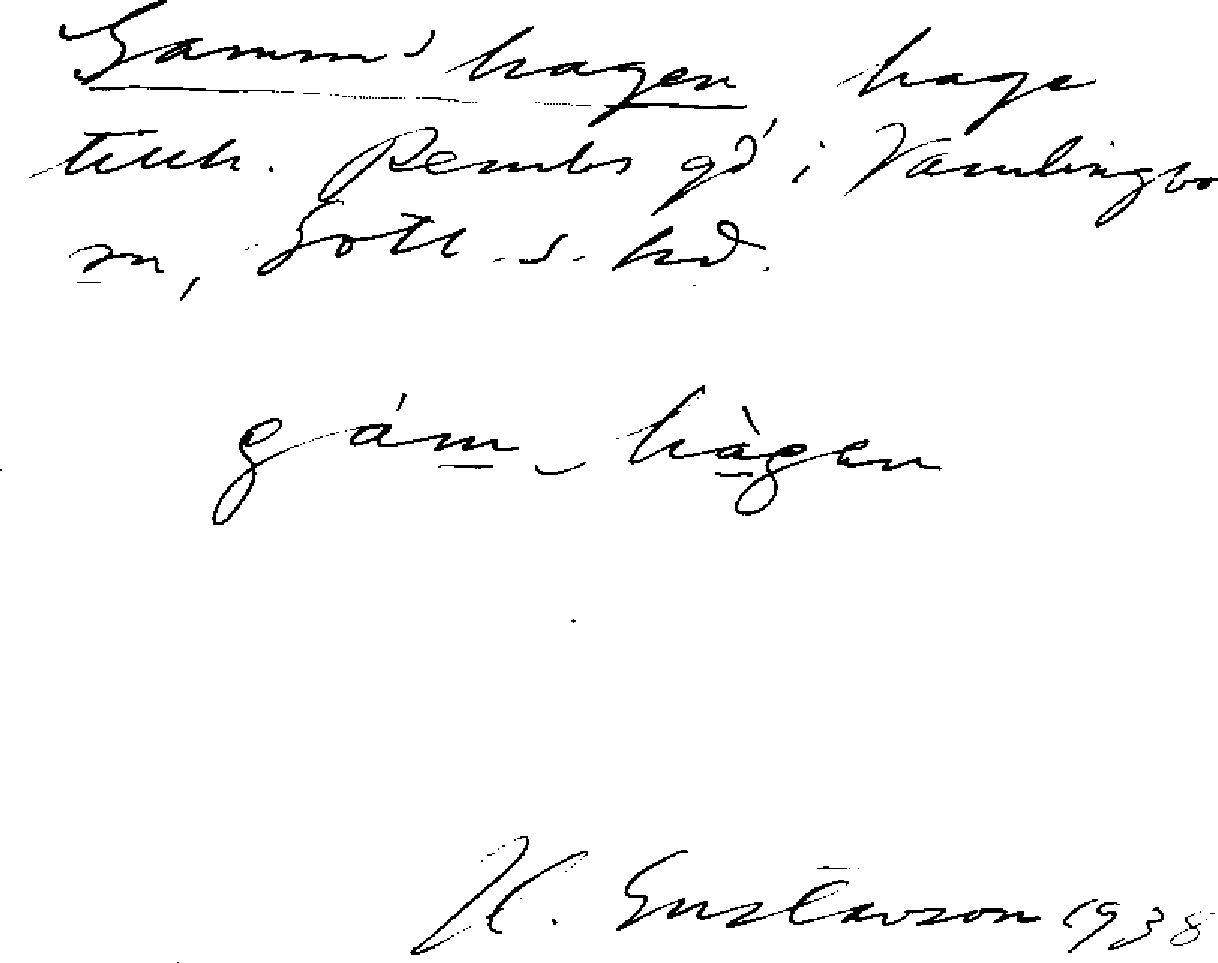 Gamm' hagen, hage
tillh. Rembs gd i Vamlingbo
sn, Gotl. s. hd.
gám-hàgen
H. Gustavson 1938